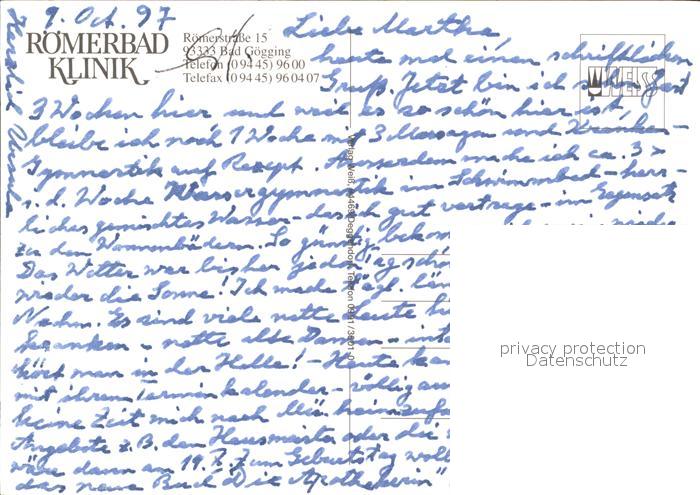 9. Oct. 97
RÖMERBAD
KLINIK
Römerstraße 15
93333 Bad Gögging
Telefon (0 94 45) 96 00
Telefax (0 94 45) 96 04 07
Liebe Martha,
heute mal einen schriftlichen
Gruß. Jetzt bin ich schon fast
3 Wochen hier und weil es so schön hier ist,
bleibe ich noch 1 Woche mit 3 Massagen und Kranken-
Gymnastik auf Rezept. Ausserdem mache ich ca. 3 x
i. d. Woche Wassergymnastik im Schwimmbad - herr-
liches gemischtes Wasser - das ich gut vertrage - im Gegensatz
zu den Wannenbädern. So günstig bekom
Das Wetter war bisher jeden Tag schö
wieder die Sonne! Ich mache tägl. län
Nachm. Es sind viele nette Leute hi
kranken - nette alte Damen - int
hört man in der Halle! - Heute ka
mit ihrem Terminkalender - völlig au
keine Zeit mich nach heimzufa
Angebote z. B. den Hausmeister oder die
wäre dann am 19. z. Zum Geburtstag woll
das neue Buch "Die Apothekerin"
Herzlich Ursula
WEISS
Verlag Weiß, Deggendorf, Telefon
privacy protection
Datenschutz